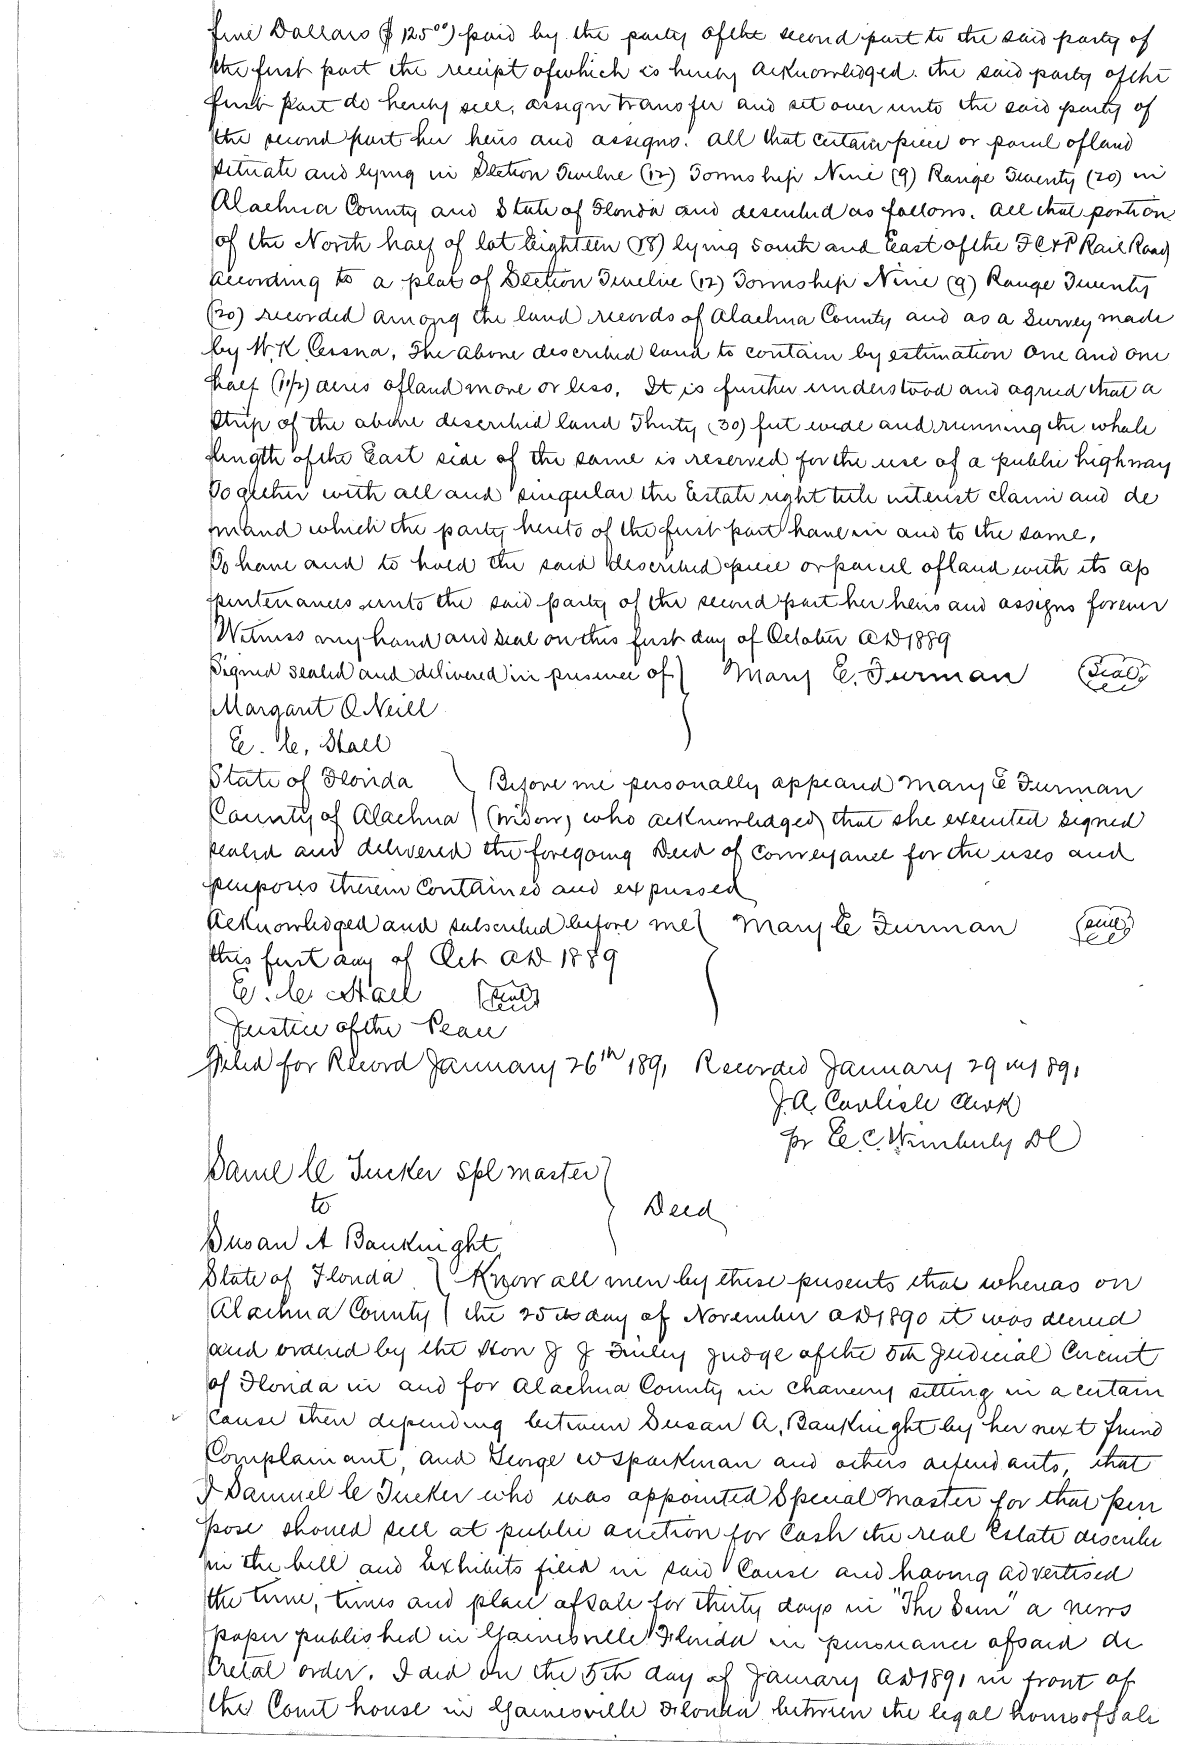 five Dollars ($125⁰⁰) paid by the party of the second part to the said party of
the first part the receipt of which is hereby acknowledged. the said party of the
first part do hereby sell, assign transfer and set over unto the said party of
the second part her heirs and assigns. all that certain piece or parcel of land
situate and lying in Section Twelve (12) Township Nine (9) Range Twenty (20) in
Alachua County and State of Florida and described as follows. all that portion
of the North half of lot Eighteen (18) lying South and East of the F C & P Rail Road
according to a plat of Section Twelve (12) Township Nine (9) Range Twenty
(20) recorded among the land records of Alachua County and as a Survey made
by W. K. Cessna, The above described land to contain by estimation one and one
half (1 1/2) acres of land more or less. It is further understood and agreed that a
strip of the above described land Thirty (30) feet wide and running the whole
length of the East side of the same is reserved for the use of a public highway
Together with all and singular the Estate right title interest claim and de
mand which the party hereto of the first part have in and to the same.
To have and to hold the said described piece or parcel of land with its ap
purtenances unto the said party of the second part her heirs and assigns forever
Witness my hand and seal on this first day of October AD 1889
Signed sealed and delivered in presence of } Mary E. Furman (Seal)
Margaret O Neill
E. C. Stall
State of Florida } Before me personally appeared Mary E Furman
County of Alachua } (widow) who acknowledged that she executed signed
sealed and delivered the foregoing Deed of Conveyance for the uses and
purposes therein contained and expressed
Acknowledged and subscribed before me } Mary E Furman (seal)
this first day of Oct AD 1889
E. C. Stall (seal)
Justice of the Peace
Filed for Record January 26th 1891 Recorded January 29 1891
J. A. Carlisle Clerk
pr E. C. Wimberly DC
Saml C Tucker Spl master
to } Deed
Susan A Bauknight
State of Florida } Know all men by these presents that whereas on
Alachua County } the 25th day of November AD 1890 it was decreed
and ordered by the Hon J J Finley Judge of the 5th Judicial Circuit
of Florida in and for Alachua County in Chancery sitting in a certain
cause then depending between Susan A. Bauknight by her next friend
Complainant, and George W Sparkman and others defendants, that
I Samuel C Tucker who was appointed Special Master for that pur
pose should sell at public auction for Cash the real Estate describe
in the bill and Exhibits filed in said Cause and having advertised
the time, times and place of sale for thirty days in "The Sun" a news
paper published in Gainesville Florida in pursuance of said de
cretal order. I did on the 5th day of January AD 1891 in front of
the Court house in Gainesville Florida between the legal hours of Sale